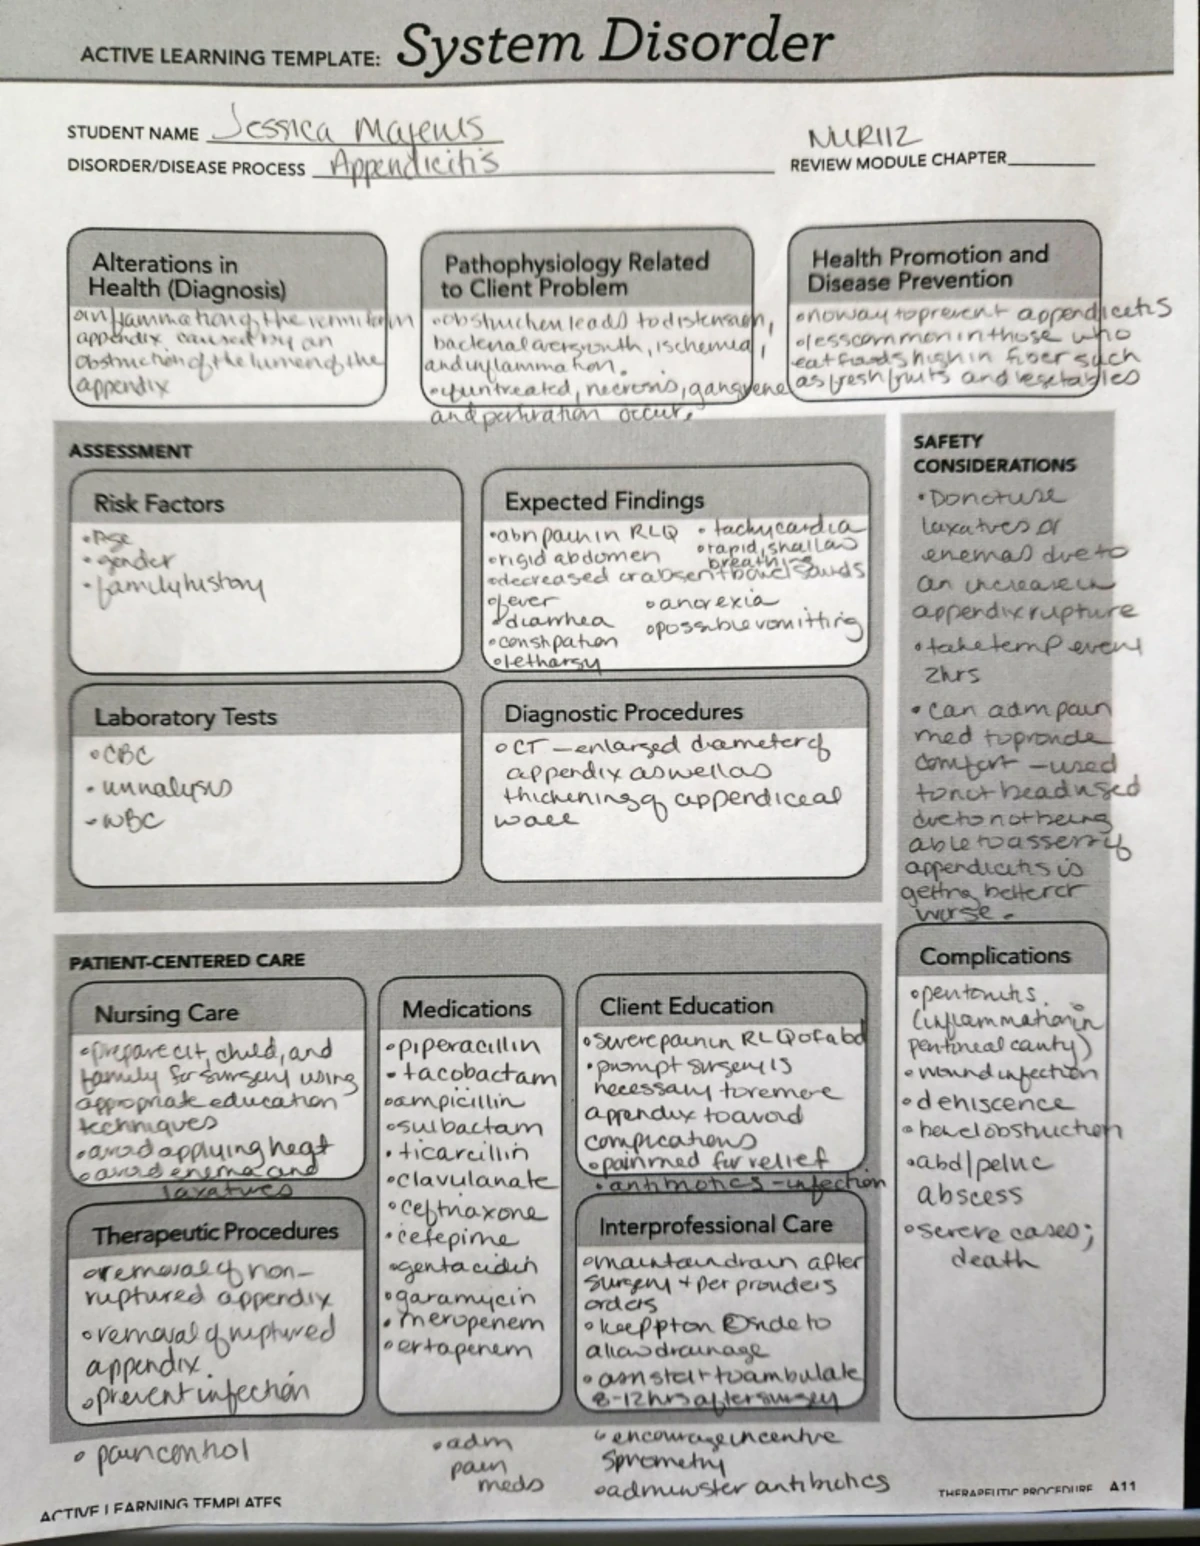 ACTIVE LEARNING TEMPLATE: System Disorder
STUDENT NAME Jessica
NUR112
DISORDER/DISEASE PROCESS Appendicitis
REVIEW MODULE CHAPTER
Alterations in
Health (Diagnosis)
•inflammation of the vermiform
appendix caused by an
obstruction of the lumen of the
appendix
Pathophysiology Related
to Client Problem
•obstruction leads to distension,
bacterial overgrowth, ischemia,
and inflammation.
•if untreated, necrosis, gangrene
and perforation occur.
Health Promotion and
Disease Prevention
•no way to prevent appendicitis
•less common in those who
eat foods high in fiber such
as fresh fruits and vegetables
ASSESSMENT
Risk Factors
•Age
•gender
•family history
Expected Findings
•abn pain in RLQ •tachycardia
•rigid abdomen •rapid, shallow
breathing
•decreased or absent bowel sounds
•fever •anorexia
•diarrhea •possible vomitting
•constipation
•lethargy
Laboratory Tests
•CBC
•urinalysis
-WBC
Diagnostic Procedures
•CT - enlarged diameter of
appendix as well as
thickening of appendiceal
wall
SAFETY
CONSIDERATIONS
•Do not use
laxatives or
enemas due to
an increase in
appendix rupture
•take temp every
2hrs
•can adm pain
med to provide
comfort - used
to not be adused
due to not being
able to assess if
appendicitis is
getting better or
worse.
PATIENT-CENTERED CARE
Nursing Care
•prepare clt, child, and
family for surgery using
appropriate education
techniques
•avoid applying heat
•avoid enema and
laxatives
Medications
•piperacillin
•tacobactam
•ampicillin
•sulbactam
•ticarcillin
•clavulanate
•ceftriaxone
•cefepime
•gentacidin
•garamycin
•meropenem
•ertapenem
Client Education
•severe pain in RLQ of abd
•prompt surgery is
necessary to remove
appendix to avoid
complications
•pain med for relief
•antibiotics - infection
Complications
•peritonitis.
(inflammation in
peritineal cavity)
•wound infection
•dehiscence
•bowel obstruction
•abd/pelvic
abscess
•severe cases;
death
Therapeutic Procedures
•removal of non-
ruptured appendix
•removal of ruptured
appendix.
•prevent infection
•pain control
•adm
pain
meds
Interprofessional Care
•maintain drain after
surgery + per providers
orders
•keep pt on side to
allow drainage
•asn start to ambulate
8-12hrs after surgery
•encourage incentive
spirometry
•administer antibiotics
ACTIVE LEARNING TEMPLATES
THERAPEUTIC PROCEDURE A11